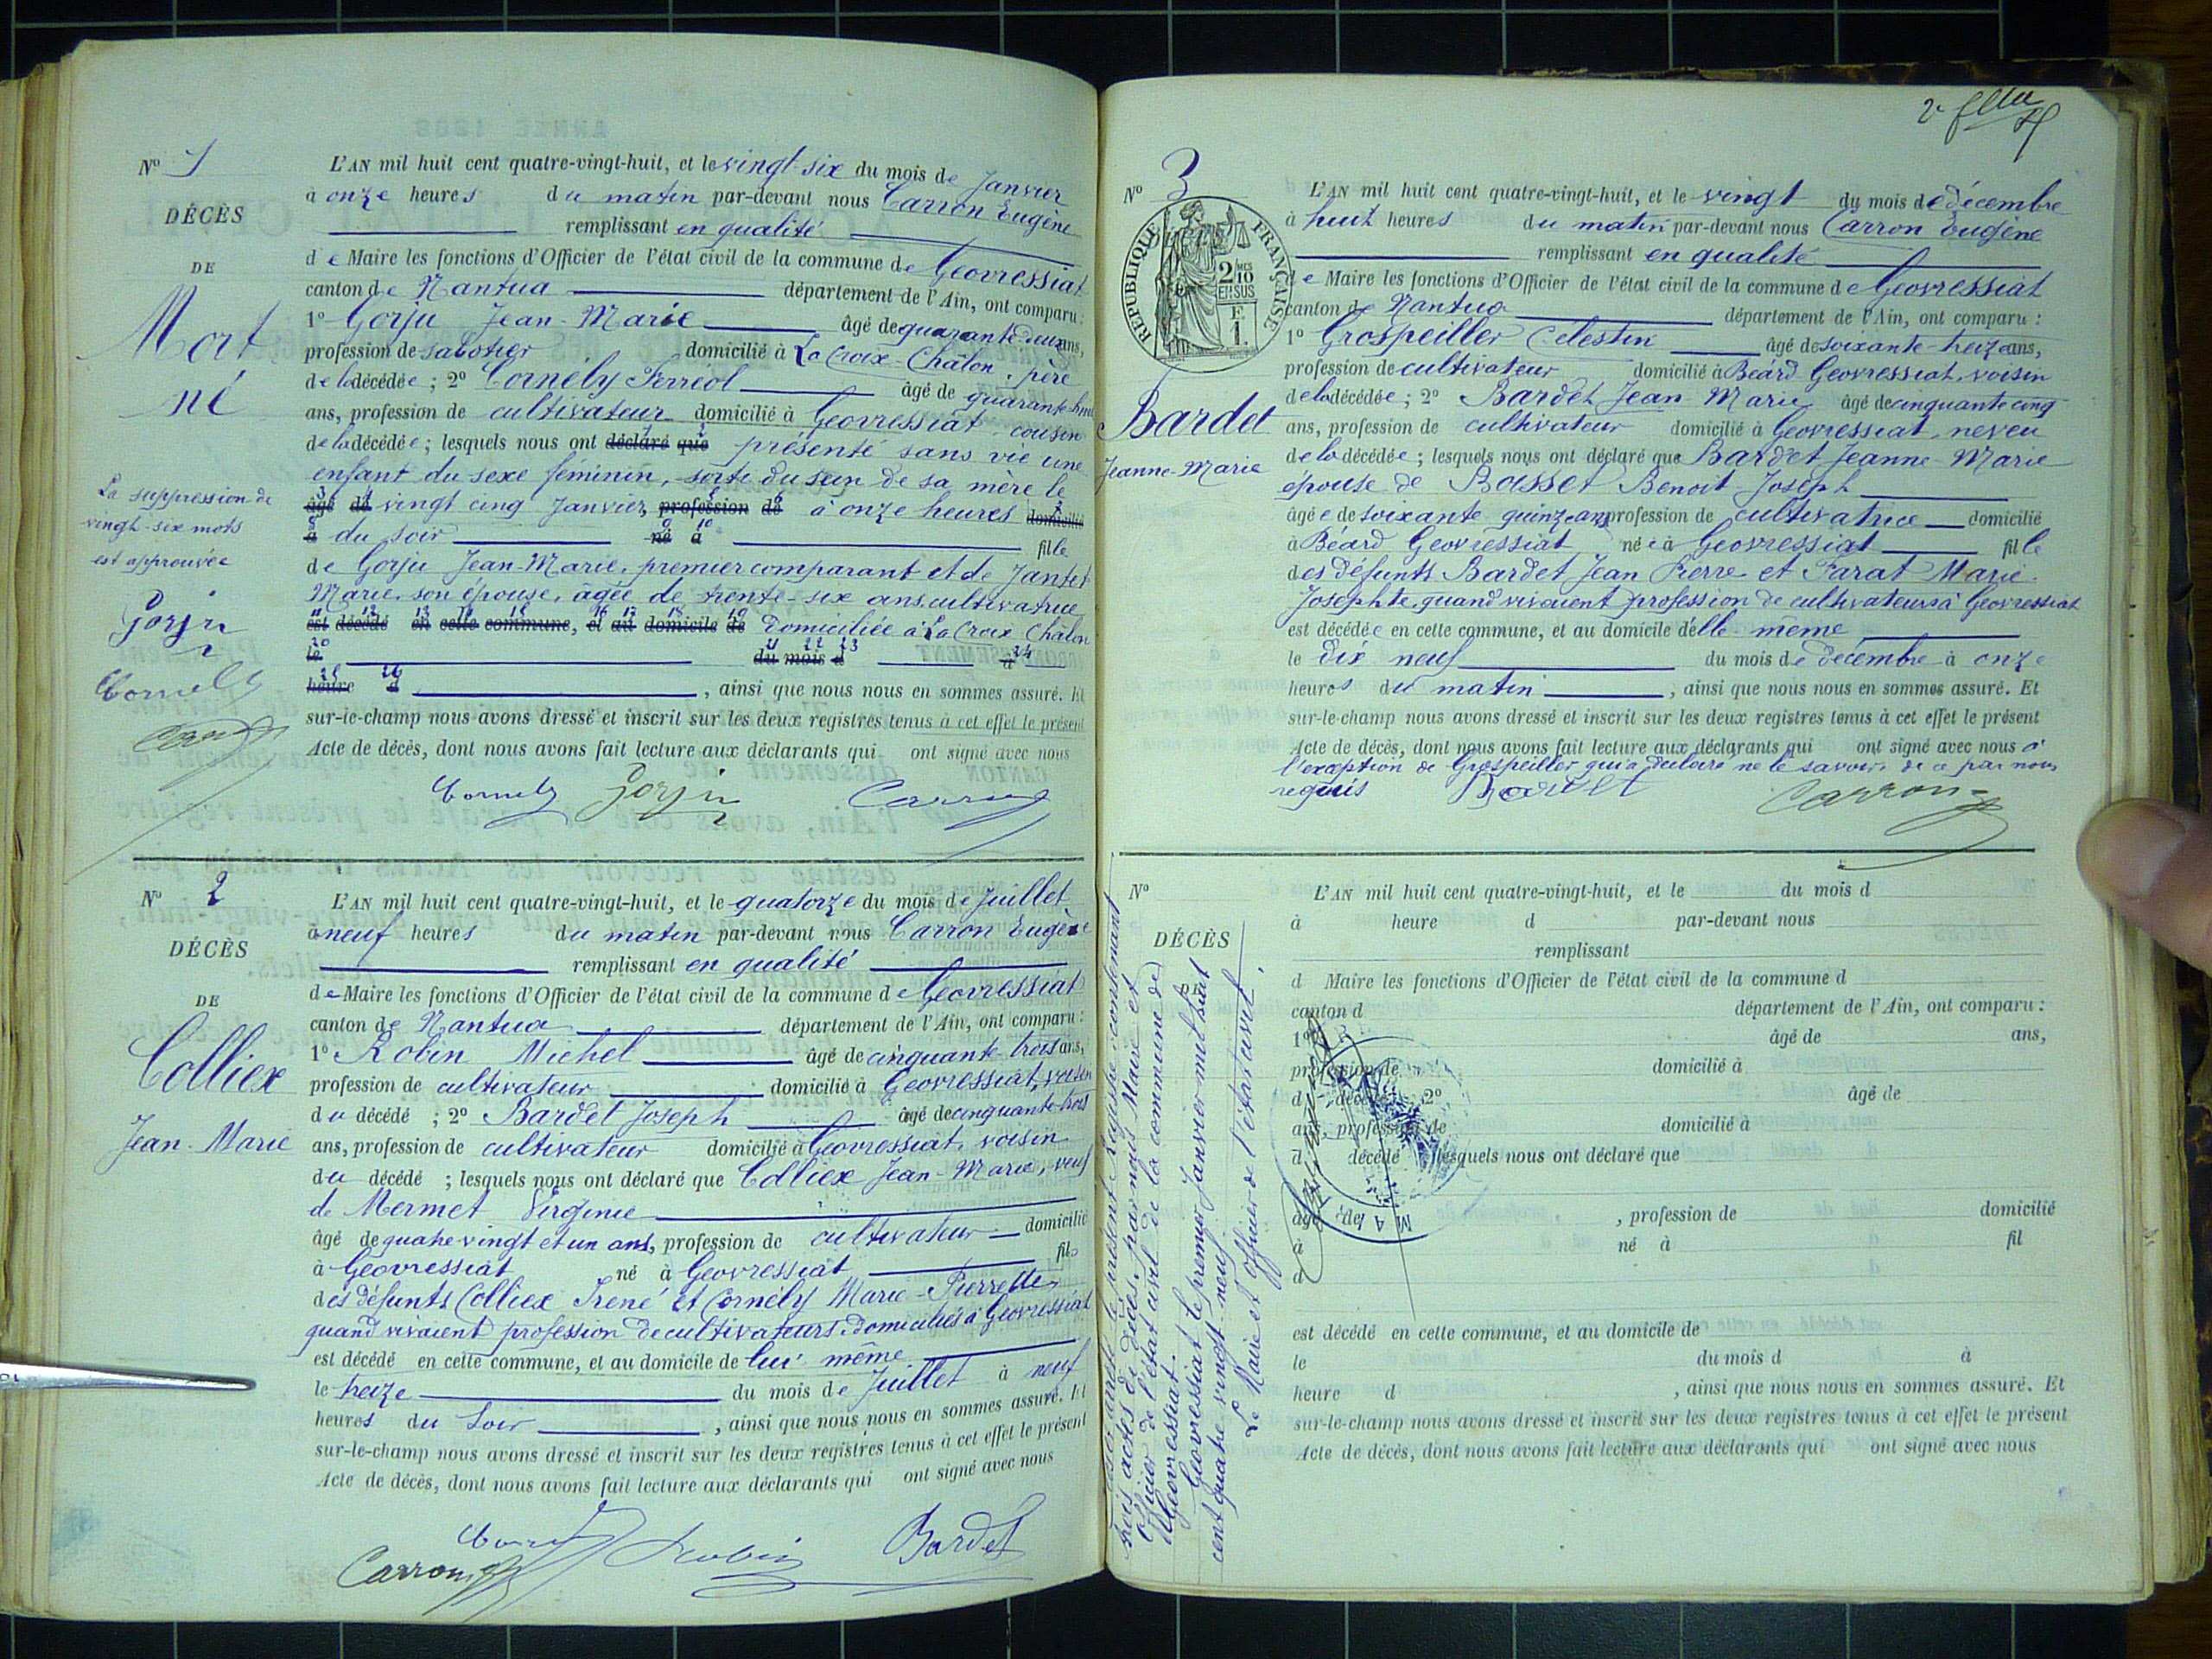 No 1
DÉCÈS
DE
Mort
né
La suppression de
vingt-six mots
est approuvée
Gorju
Cornely
Carron
L'AN mil huit cent quatre-vingt-huit, et le vingt-six du mois de Janvier
à onze heures du matin par-devant nous Carron Eugène
remplissant en qualité
de Maire les fonctions d'Officier de l'état civil de la commune de Geovressiat
canton de Nantua département de l'Ain, ont comparu :
1o Gorju Jean-Marie âgé de quarante deux ans,
profession de sabotier domicilié à La Croix-Châlon, père
de la décédée ; 2o Cornély Ferréol âgé de quarante huit
ans, profession de cultivateur domicilié à Geovressiat cousin
de la décédée ; lesquels nous ont déclaré que présenté sans vie une
enfant du sexe féminin, sortie du sein de sa mère le
âgé de vingt cinq Janvier, profession de à onze heures domicilié
à du soir né à fille
de Gorju Jean-Marie, premier comparant et de Jantet
Marie, son épouse, âgée de trente-six ans, cultivatrice
est décédé en cette commune, et au domicile de domiciliée à La Croix Châlon
le du mois d à
heure d , ainsi que nous nous en sommes assuré. Et
sur-le-champ nous avons dressé et inscrit sur les deux registres tenus à cet effet le présent
Acte de décès, dont nous avons fait lecture aux déclarants qui ont signé avec nous
Cornely Gorju Carron
No 2
DÉCÈS
DE
Colliex
Jean-Marie
L'AN mil huit cent quatre-vingt-huit, et le quatorze du mois de Juillet
à neuf heures du matin par-devant nous Carron Eugène
remplissant en qualité
de Maire les fonctions d'Officier de l'état civil de la commune de Geovressiat
canton de Nantua département de l'Ain, ont comparu :
1o Robin Michel âgé de cinquante-trois ans,
profession de cultivateur domicilié à Geovressiat, voisin
du décédé ; 2o Bardet Joseph âgé de cinquante-trois
ans, profession de cultivateur domicilié à Geovressiat, voisin
du décédé ; lesquels nous ont déclaré que Colliex Jean-Marie, veuf
de Mermet Virginie
âgé de quatre vingt et un ans, profession de cultivateur domicilié
à Geovressiat né à Geovressiat fils
des défunts Colliex Irené et Cornély Marie-Pierrette
quand vivaient profession de cultivateurs, domiciliés à Geovressiat
est décédé en cette commune, et au domicile de lui même
le treize du mois de Juillet à neuf
heures du Soir , ainsi que nous nous en sommes assuré. Et
sur-le-champ nous avons dressé et inscrit sur les deux registres tenus à cet effet le présent
Acte de décès, dont nous avons fait lecture aux déclarants qui ont signé avec nous
Robin Bardet
Carron
No 3
RÉPUBLIQUE FRANÇAISE
2 MES
10
EN SUS
E
1.
Bardet
Jeanne-Marie
L'AN mil huit cent quatre-vingt-huit, et le vingt du mois de décembre
à huit heures du matin par-devant nous Carron Eugène
remplissant en qualité
de Maire les fonctions d'Officier de l'état civil de la commune de Geovressiat
canton de Nantua département de l'Ain, ont comparu :
1o Grospeiller Célestin âgé de soixante-treize ans,
profession de cultivateur domicilié à Béard Geovressiat, voisin
de la décédée ; 2o Bardet Jean Marie âgé de cinquante cinq
ans, profession de cultivateur domicilié à Geovressiat, neveu
de la décédée ; lesquels nous ont déclaré que Bardet Jeanne-Marie
épouse de Basset Benoit-Joseph
âgée de soixante quinze ans profession de cultivatrice domicilié
à Béard Geovressiat née à Geovressiat fille
des défunts Bardet Jean Pierre et Farat Marie-
Josephte, quand vivaient profession de cultivateurs à Geovressiat
est décédée en cette commune, et au domicile d'elle-même
le dix neuf du mois de décembre à onze
heures du matin , ainsi que nous nous en sommes assuré. Et
sur-le-champ nous avons dressé et inscrit sur les deux registres tenus à cet effet le présent
Acte de décès, dont nous avons fait lecture aux déclarants qui ont signé avec nous à
l'exception de Grospeiller qui a déclaré ne le savoir, de ce par nous
requis Bardet Carron
No
DÉCÈS
L'AN mil huit cent quatre-vingt-huit, et le du mois d
à heure d par-devant nous
remplissant
d Maire les fonctions d'Officier de l'état civil de la commune d
canton d département de l'Ain, ont comparu :
1o âgé de ans,
profession de domicilié à
d décédé 2o âgé de
ans, profession de domicilié à
d décédé lesquels nous ont déclaré que
âgé de , profession de domicilié
à né à fil
d
est décédé en cette commune, et au domicile de
le du mois d à
heure d , ainsi que nous nous en sommes assuré. Et
sur-le-champ nous avons dressé et inscrit sur les deux registres tenus à cet effet le présent
Acte de décès, dont nous avons fait lecture aux déclarants qui ont signé avec nous
arrêté le présent registre contenant
trois actes de décès, par nous Maire et
officier de l'état civil de la commune de
Geovressiat.
Geovressiat le premier Janvier mil huit
cent quatre vingt-neuf.
Le Maire et officier de l'état civil.